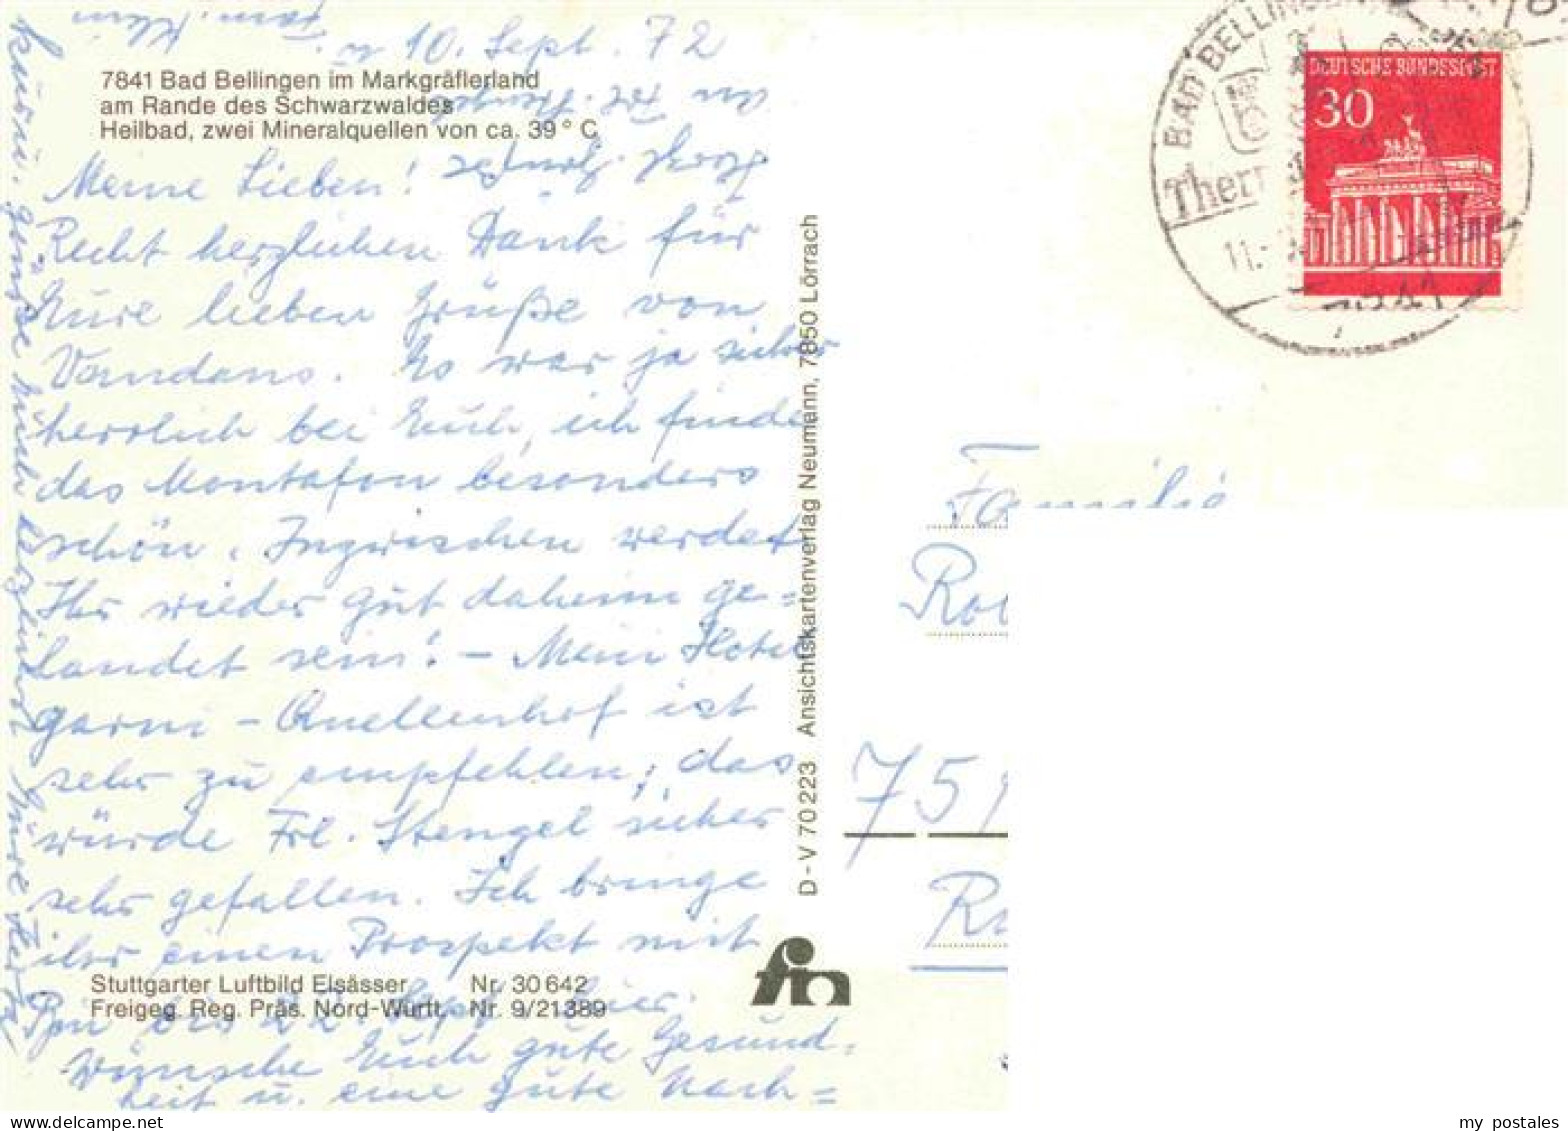 10. Sept. 72
7841 Bad Bellingen im Markgräflerland
am Rande des Schwarzwaldes
Heilbad, zwei Mineralquellen von ca. 39° C
Meine Lieben!
Recht herzlichen Dank für
Eure lieben Grüße von
Vandans. Es war ja sicher
herrlich bei Euch, ich finde
das Montafon besonders
schön. Inzwischen werdet
Ihr wieder gut daheim ge=
landet sein! - Mein Hotel
garni - Quellenhof ist
sehr zu empfehlen, das
würde Frl. Stengel sicher
sehr gefallen. Ich bringe
ihr einen Prospekt mit
Stuttgarter Luftbild Elsässer Nr. 30 642
Freigeg. Reg. Präs. Nord-Württ. Nr. 9/21389
Bin bis 22. Sept. hier.
Wünsche Euch gute Gesund=
heit u. eine gute Nach=
kur u. grüße Euch herzlichst Eure
u. Fam. Klein
an Frl. Stengel
D-V 70 223 Ansichtskartenverlag Neumann, 7850 Lörrach
fin
BAD BELLINGEN
Ther
11.
7841
DEUTSCHE BUNDESPOST
30
Familie
Ro
759
R
my postales